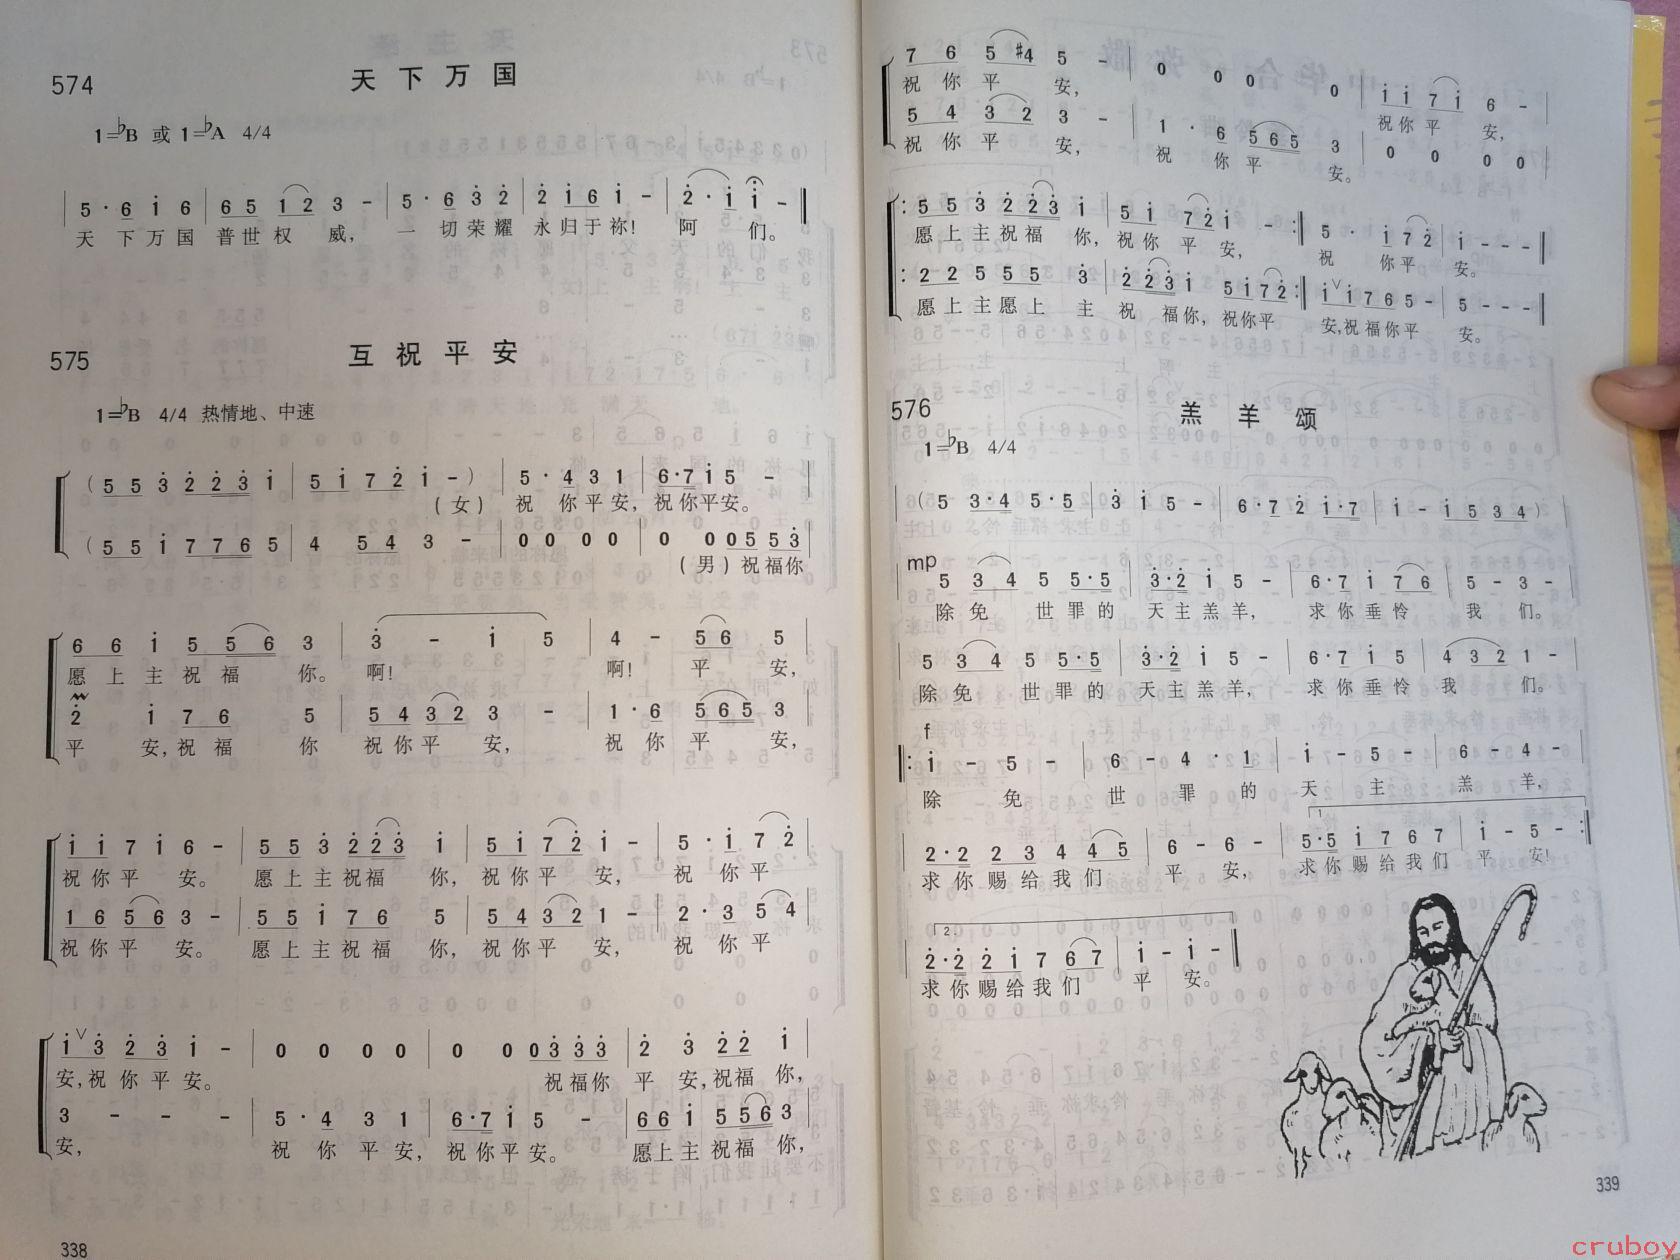 574 天下万国
1=♭B 或 1=♭A 4/4
5·6 i 6 | 6 5 1 2 3 - | 5·6 3 2 | 2 i 6 i - | 2·i i - ‖
天下万国 普世权 威， 一切荣耀 永归于祢！ 阿 们。
575 互祝平安
1=♭B 4/4 热情地、中速
(5 5 3 2 2 3 i | 5 i 7 2 i -) | 5·4 3 1 | 6·7 i 5 - |
(女) 祝 你平安，祝你平安。
(5 5 i 7 7 6 5 | 4 5 4 3 - | 0 0 0 0 | 0 0 0 5 5 3
(男) 祝福你
6 6 i 5 5 6 3 | 3 - i 5 | 4 - 5 6 5 |
愿上主祝福 你。 啊！ 啊！ 平 安，
2 i 7 6 5 | 5 4 3 2 3 - | 1·6 5 6 5 3 |
平 安，祝福 你 祝你平 安， 祝 你 平 安，
i i 7 i 6 - | 5 5 3 2 2 3 i | 5 i 7 2 i - | 5·i 7 2
祝你平 安。 愿上主祝福 你，祝你平 安， 祝 你平
1 6 5 6 3 - | 5 5 i 7 6 5 | 5 4 3 2 1 - | 2·3 5 4
祝你平 安。 愿上主祝福 你，祝你平 安， 祝 你 平
i ∨ 3 2 3 i - | 0 0 0 0 | 0 0 0 3 3 3 | 2 3 2 2 i |
安，祝你平安。 祝福你 平 安，祝福 你，
3 - - - | 5·4 3 1 | 6·7 i 5 - | 6 6 i 5 5 6 3 |
安， 祝 你 平 安，祝你平安。 愿上主祝福 你，
338
7 6 5 #4 5 - | 0 0 0 0 | i i 7 i 6 - |
祝你平 安， 祝你平 安，
5 4 3 2 3 - | 1·6 5 6 5 3 | 0 0 0 0 |
祝你平 安， 祝 你平 安。
‖: 5 5 3 2 2 3 i | 5 i 7 2 i - :‖ 5·i 7 2 | i - - - ‖
愿上主祝福 你，祝你 平 安， 祝 你平 安。
: 2 2 5 5 5 3 | 2 2 3 i 5 i 7 2 :‖ i ∨ i 7 6 5 - | 5 - - - ‖
愿上主愿上 主 祝 福你，祝你平 安，祝福你平 安。
576 羔羊颂
1=♭B 4/4
(5 3·4 5 5·5 | 3 i 5 - | 6·7 2 i·7 | i - i 5 3 4)
mp
5 3 4 5 5·5 | 3·2 i 5 - | 6·7 i 7 6 | 5 - 3 - |
除免 世罪的 天主羔羊， 求你垂怜 我 们。
5 3 4 5 5·5 | 3·2 i 5 - | 6·7 i 5 | 4 3 2 1 - |
除免 世罪的 天主羔羊， 求你垂怜 我 们。
f
‖: i - 5 - | 6 - 4·1 | i - 5 - | 6 - 4 - |
除 免 世 罪 的 天 主 羔 羊，
1
2·2 2 3 4 4 5 | 6 - 6 - | 5·5 i 7 6 7 | i - 5 - :‖
求你赐给我们 平 安， 求你赐给我们 平 安！
2.
2·2 2 i 7 6 7 | i - i - ‖
求你赐给我们 平 安。
339
cruboy